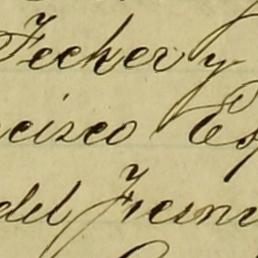 Fecker y
cisco Es
del Fresn